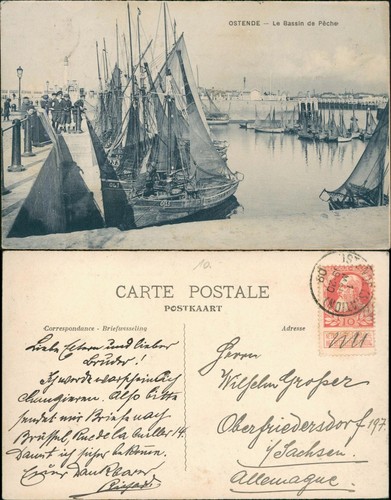 OSTENDE — Le Bassin de Pêche
10.
CARTE POSTALE
POSTKAART
Correspondance - Briefwesseling
Adresse
Liebe Eltern und lieber
Bruder!
Ich werde warscheinlich
changieren. Also bitte
sendet mir Briefe nach
Brüssel, Rue de la 14.
damit ich sicher bekomm.
Euer Dankbarer
Richard
Herrn
Wilhelm Grosser
Oberfriedersdorf 197.
i/Sachsen.
Allemagne.
10